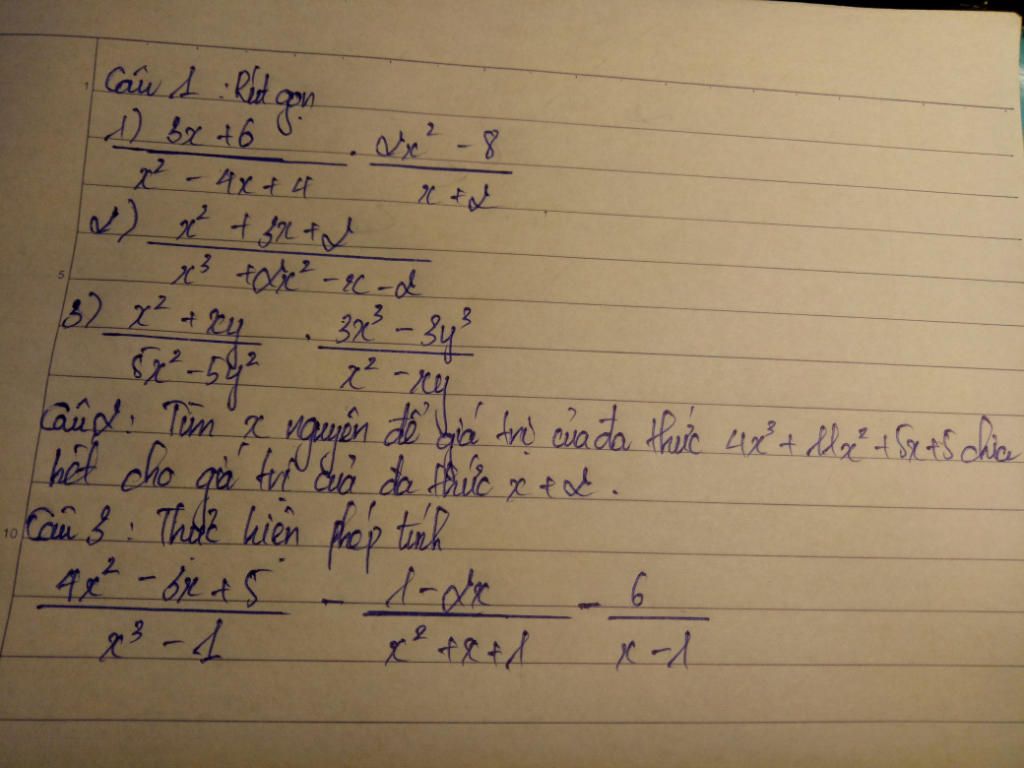 Câu 1 : Rút gọn
1) \frac{3x+6}{x^2-4x+4} . \frac{2x^2-8}{x+2}
2) \frac{x^2+3x+2}{x^3+2x^2-x-2}
3) \frac{x^2+xy}{5x^2-5y^2} . \frac{3x^3-3y^3}{x^2-xy}
Câu 2 : Tìm x nguyên để giá trị của đa thức 4x^3+11x^2+5x+5 chia
hết cho giá trị của đa thức x+2.
Câu 3 : Thực hiện phép tính
\frac{4x^2-3x+5}{x^3-1} - \frac{1-2x}{x^2+x+1} - \frac{6}{x-1}
5
10